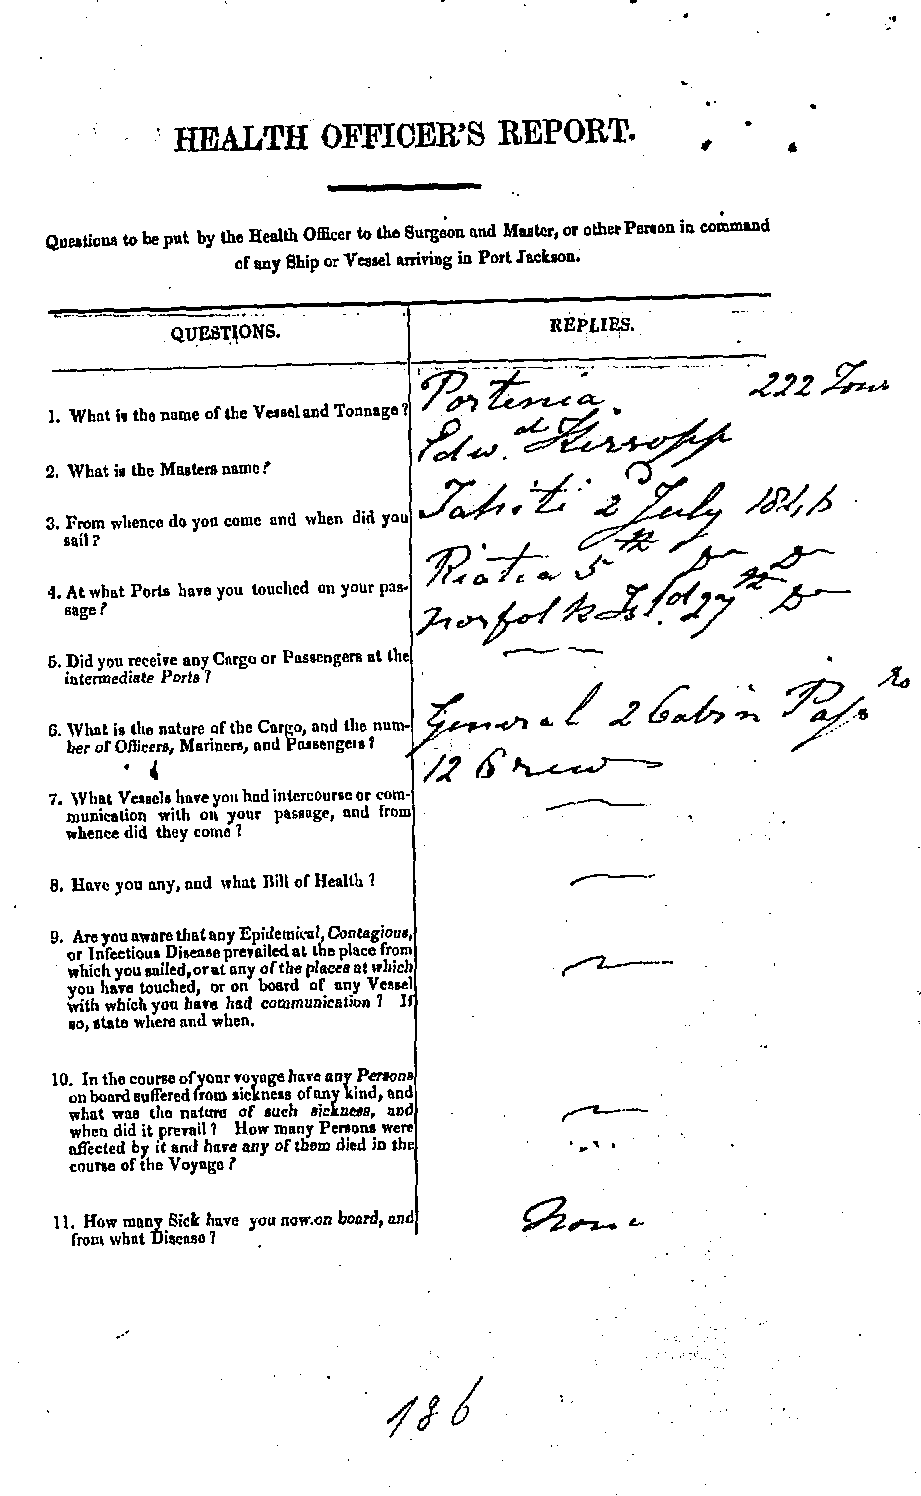 HEALTH OFFICER'S REPORT.
Questions to be put by the Health Officer to the Surgeon and Master, or other Person in command
of any Ship or Vessel arriving in Port Jackson.
QUESTIONS.
REPLIES.
1. What is the name of the Vessel and Tonnage?
Portenia. 222 Tons
2. What is the Masters name?
Edwd. Kirsopp
3. From whence do you come and when did you
sail?
Tahiti 2d July 1846
4. At what Ports have you touched on your pas-
sage?
Riatia 5th Do Do
Norfolk Isld. 27th Do
5. Did you receive any Cargo or Passengers at the
intermediate Ports?
6. What is the nature of the Cargo, and the num-
ber of Officers, Mariners, and Passengers?
General 2 Cabin Passrs
12 Crew
7. What Vessels have you had intercourse or com-
munication with on your passage, and from
whence did they come?
8. Have you any, and what Bill of Health?
9. Are you aware that any Epidemical, Contagious,
or Infectious Disease prevailed at the place from
which you sailed, or at any of the places at which
you have touched, or on board of any Vessel
with which you have had communication? If
so, state where and when.
10. In the course of your voyage have any Persons
on board suffered from sickness of any kind, and
what was the nature of such sickness, and
when did it prevail? How many Persons were
affected by it and have any of them died in the
course of the Voyage?
11. How many Sick have you now on board, and
from what Disease?
None
186